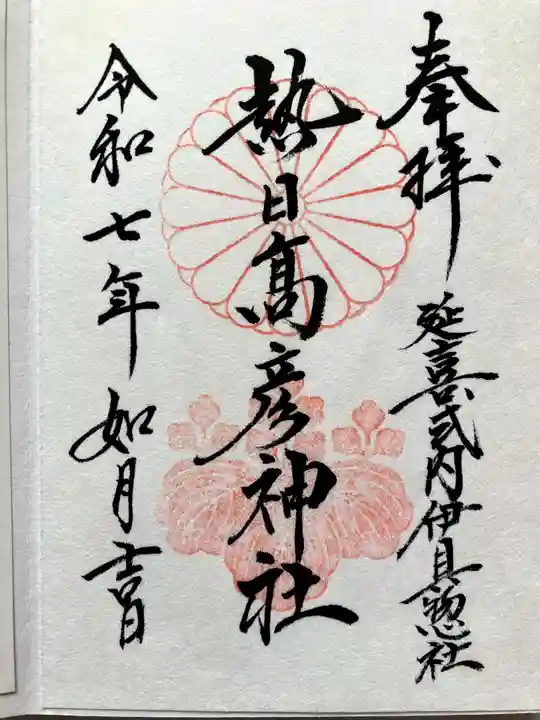 奉拝
延喜式内伊具惣社
熱日高彦神社
令和七年如月吉日